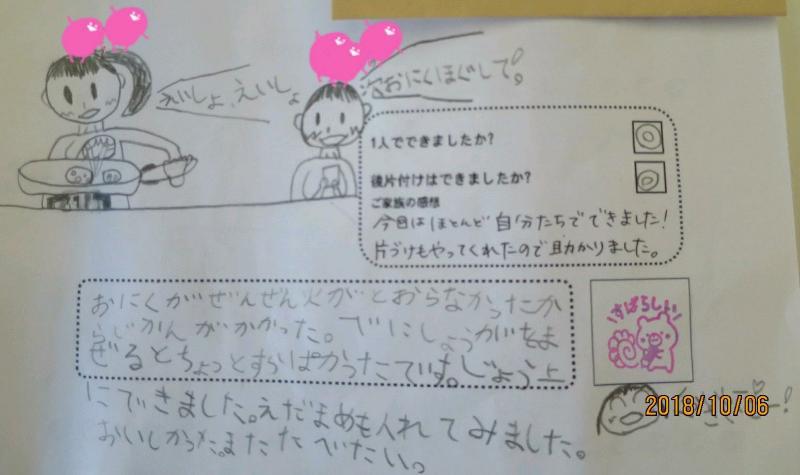 えいしょ、えいしょ
次おにくほぐして!
1人でできましたか?
後片付けはできましたか?
ご家族の感想
今回はほとんど自分たちでできました!
片づけもやってくれたので助かりました。
おにくがぜんぜん火がとおらなかったか
らじかんがかかった。べにしょうがをま
ぜるとちょっとすっぱかったです。じょう上
にできました。えだまめも入れてみました。
おいしかった。またたべたい。
すばらしい
2018/10/06